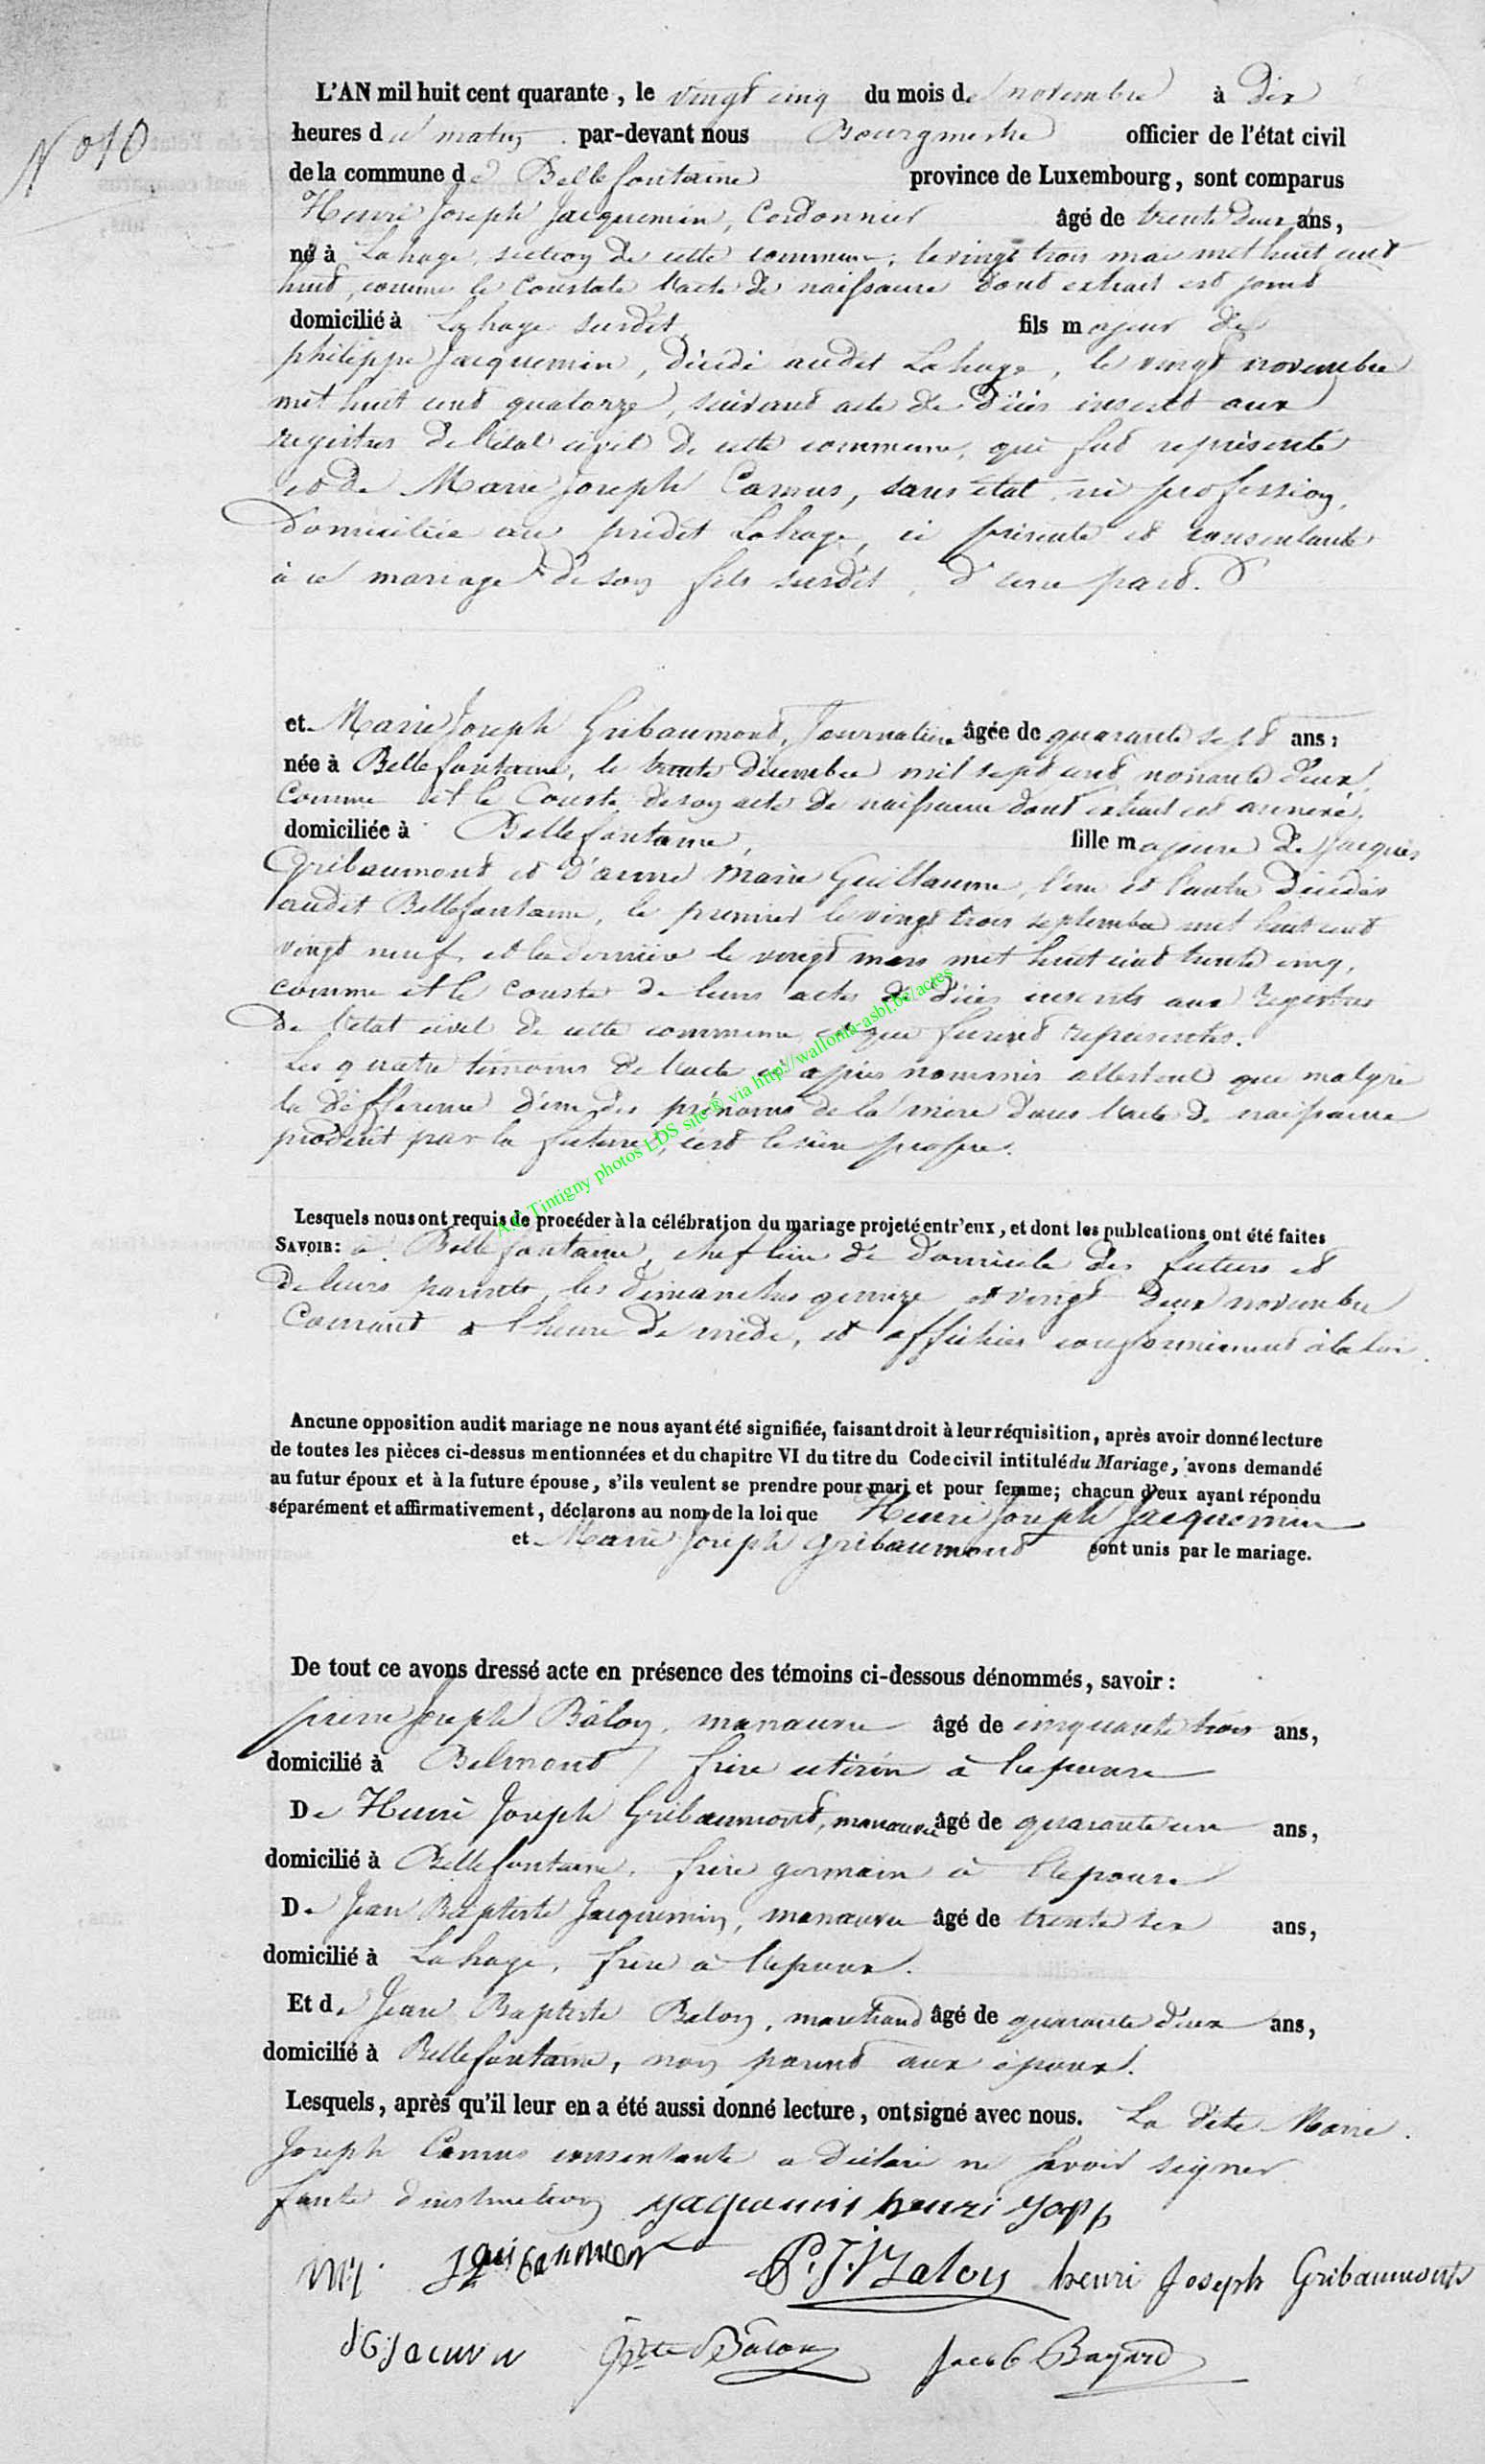 N° 10
L'AN mil huit cent quarante, le vingt cinq du mois de novembre à dix
heures du matin par-devant nous Bourgmestre officier de l'état civil
de la commune de Bellefontaine province de Luxembourg, sont comparus
Henri Joseph Jacquemin, Cordonnier âgé de trente deux ans,
né à Lahage, section de cette commune, le vingt trois mai mil huit cent
huit, comme le constate l'acte de naissance dont extrait est joint
domicilié à Lahage susdit, fils majeur de
philippe Jacquemin, décédé audit Lahage, le vingt novembre
mil huit cent quatorze, suivant acte de décès inscrit aux
registres de l'état civil de cette commune, qui fut représenté
et de Marie Joseph Camus, sans état ni profession,
domiciliée au prédit Lahage, ci présente et consentante
à ce mariage de son fils susdit, d'une part.
et Marie Joseph Gribaumont, Journalière âgée de quarante sept ans;
née à Bellefontaine, le trente décembre mil sept cent nonante deux,
comme il le conste de son acte de naissance dont extrait est annexé,
domiciliée à Bellefontaine, fille majeure de Jacques
Gribaumont et d'anne Marie Guillaume, l'un et l'autre décédés
audit Bellefontaine, le premier le vingt trois septembre mil huit cent
vingt neuf, et la dernière le vingt mars mil huit cent trente cinq,
comme il le conste de leurs actes de décès inscrits aux registres
de l'état civil de cette commune, et que furent représentés.
Les quatre témoins de l'acte ci après nommés attestent que malgré
la différence d'un des prénoms de la mère dans l'acte de naissance
produit par la future, c'est le sien propre.
Lesquels nous ont requis de procéder à la célébration du mariage projeté entr'eux, et dont les publcations ont été faites
SAVOIR: à Bellefontaine, chef lieu de domicile des futurs et
de leurs parents, les dimanches quinze et vingt deux novembre
Courant à l'heure de midi, et affichées conformément à la loi.
Aucune opposition audit mariage ne nous ayant été signifiée, faisant droit à leur réquisition, après avoir donné lecture
de toutes les pièces ci-dessus mentionnées et du chapitre VI du titre du Code civil intitulé du Mariage, avons demandé
au futur époux et à la future épouse, s'ils veulent se prendre pour mari et pour femme; chacun d'eux ayant répondu
séparément et affirmativement, déclarons au nom de la loi que Henri Joseph Jacquemin
et Marie Joseph Gribaumont sont unis par le mariage.
De tout ce avons dressé acte en présence des témoins ci-dessous dénommés, savoir:
pierre Joseph Bâlon, manoeuvre âgé de cinquante trois ans,
domicilié à Belmont, frère utérin à l'épouse
De Henri Joseph Gribaumont, manoeuvre âgé de quarante un ans,
domicilié à Bellefontaine, frère germain à l'épouse
De Jean Baptiste Jacquemin, manoeuvre âgé de trente six ans,
domicilié à Lahage, frère à l'époux.
Et de Jean Baptiste Balon, marchand âgé de quarante deux ans,
domicilié à Bellefontaine, non parent aux époux.
Lesquels, après qu'il leur en a été aussi donné lecture, ont signé avec nous. La dite Marie
Joseph Camus consentante a déclaré ne savoir signer
faute d'instruction
henri
P. J. Balon henri Joseph Gribaumont
Bte Balon Jacob Bayard
A.C. Tintigny photos LDS site ® via http://wallonia-asbl.be/actes